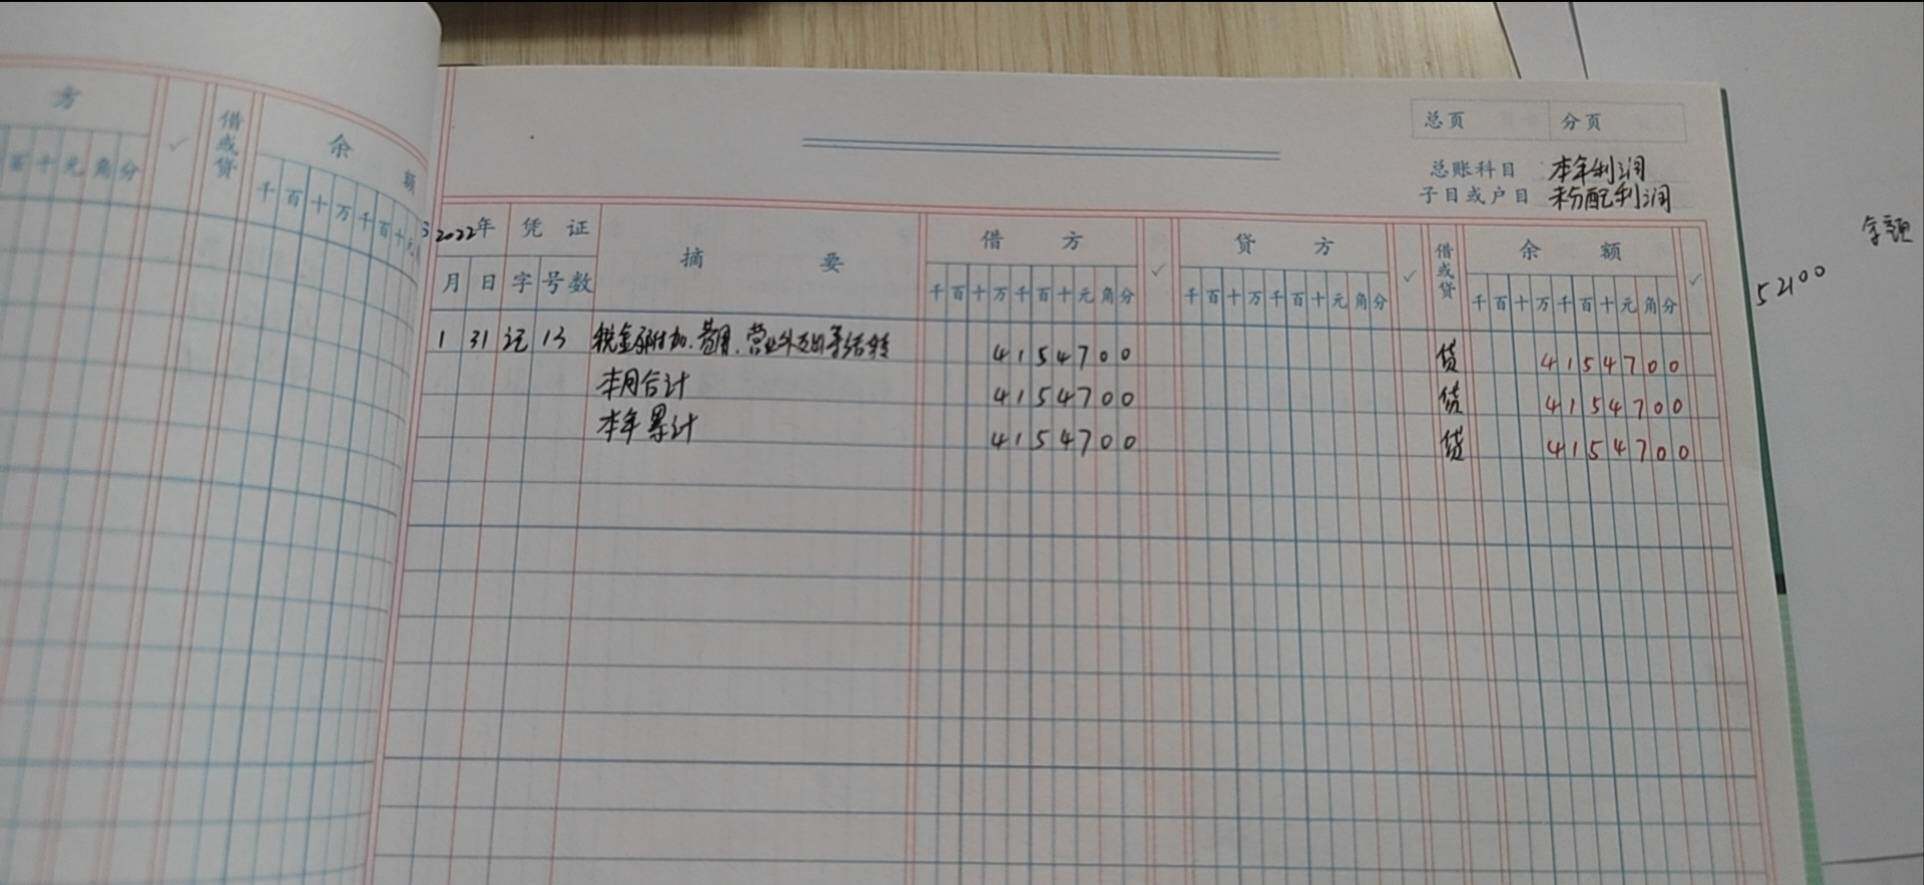 方
✓
借或贷
余 额
百十元角分
千百十万千百十元
总页 分页
总账科目 本年利润
子目或户目 未分配利润
2022年 凭证 摘要 借方 ✓ 贷方 ✓ 借或贷 余额 ✓
月 日 字 号数 千百十万千百十元角分 千百十万千百十元角分 千百十万千百十元角分
1 31 记 13 税金及附加、费用、营业外支出等结转 4154700 贷 4154700
本月合计 4154700 贷 4154700
本年累计 4154700 贷 4154700
余额
52100